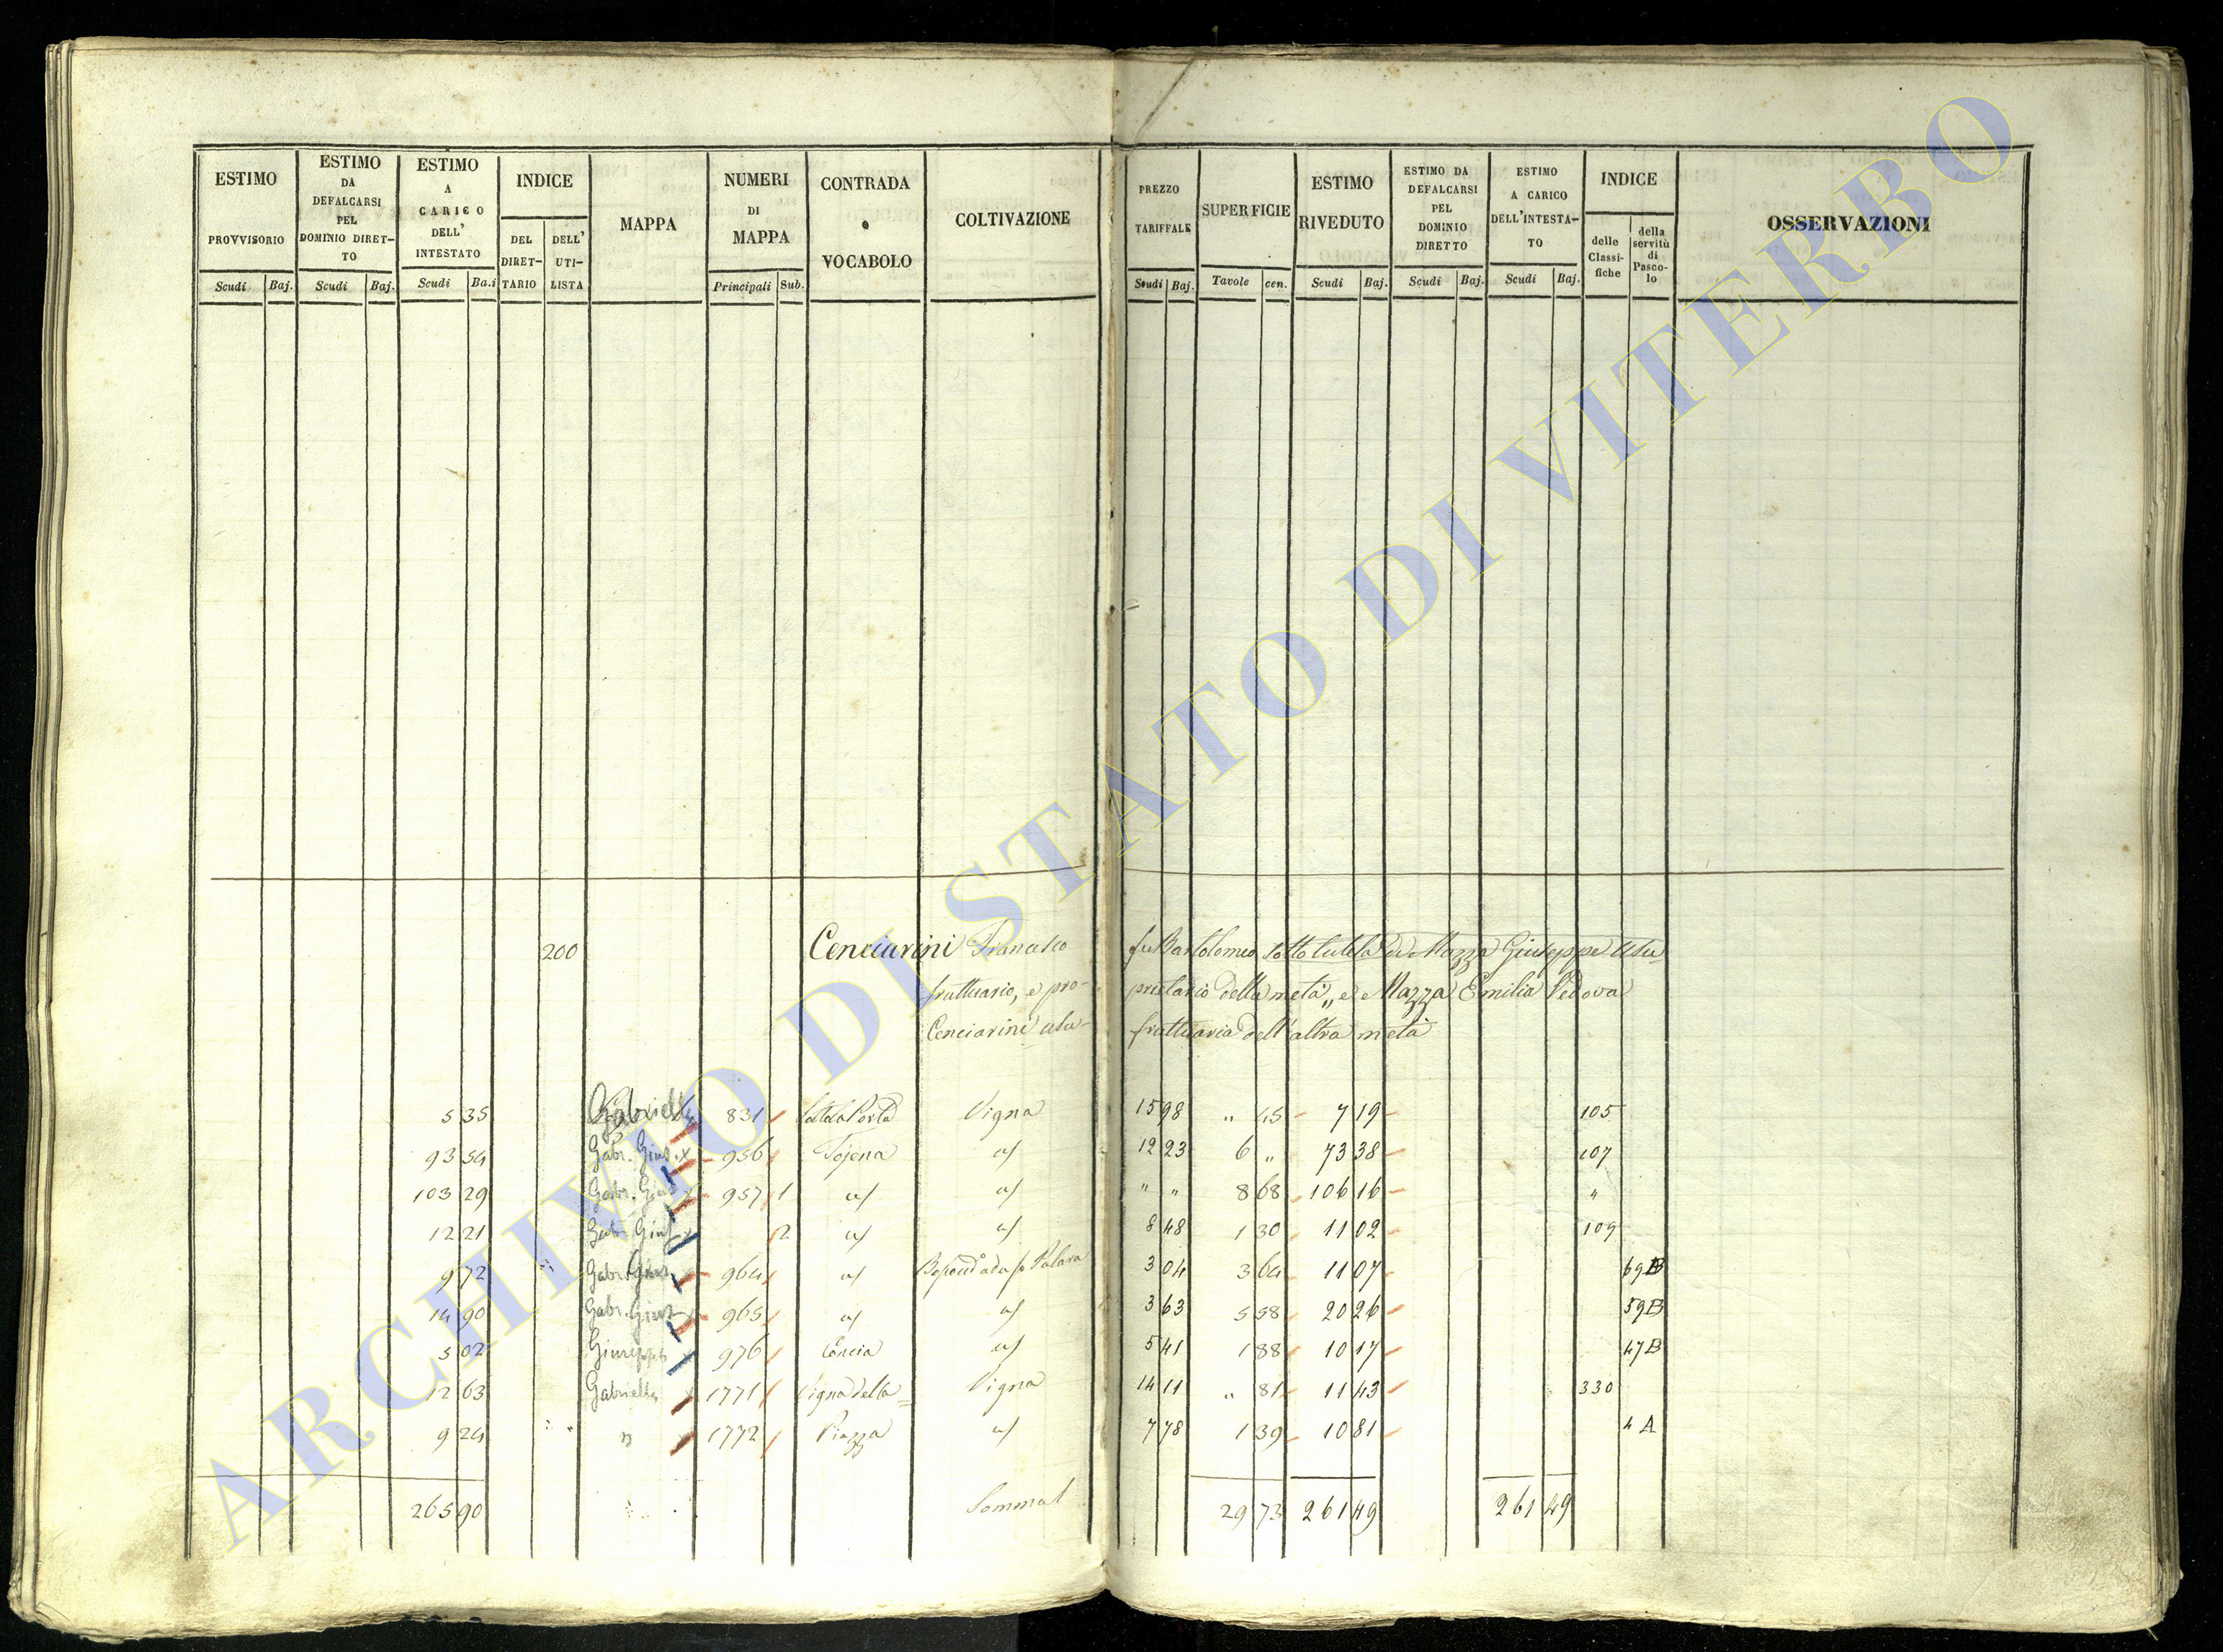 ESTIMO PROVVISORIO
Scudi Baj.
ESTIMO DA DEFALCARSI PEL DOMINIO DIRETTO
Scudi Baj.
ESTIMO A CARICO DELL' INTESTATO
Scudi Ba.i
INDICE
DEL DIRETTARIO
DELL' UTILISTA
MAPPA
NUMERI DI MAPPA
Principali Sub.
CONTRADA o VOCABOLO
COLTIVAZIONE
PREZZO TARIFFALE
Scudi Baj.
SUPERFICIE
Tavole cen.
ESTIMO RIVEDUTO
Scudi Baj.
ESTIMO DA DEFALCARSI PEL DOMINIO DIRETTO
Scudi Baj.
ESTIMO A CARICO DELL'INTESTATO
Scudi Baj.
INDICE
delle Classifiche
della servitù di Pascolo
OSSERVAZIONI
200 Cenciarini Francesco fu Bartolomeo sotto tutela di Mazza Giuseppe usu-
fruttuario, e pro- prietario della metà „ e Mazza Emilia Vedova
Cenciarini usu- fruttuaria dell'altra metà
5 35 Gabriella 831 Vigna 15 98 " 45 7 19 105
93 54 Gabr. Gius. x 956 Tojena a/ 12 23 6 " 73 38 107
103 29 Gabr. Gius 957 1 a/ a/ " " 8 68 106 16 "
12 21 Gab Gius x 2 a/ a/ 8 48 1 30 11 02 109
9 72 Gabr. Gius 964 a/ 3 04 3 64 11 07 69 B
14 90 Gabr. Gius 965 a/ a/ 3 63 5 58 20 26 59 B
5 02 Giuseppe 976 Concia a/ 5 41 1 88 10 17 47 B
12 63 Gabriella 1771 Vigna della= Vigna 14 11 " 81 11 43 330
9 24 " 1772 Piazza a/ 7 78 1 39 10 81 4 A
265 90 29 73 261 49 261 49
ARCHIVIO DI STATO DI VITERBO